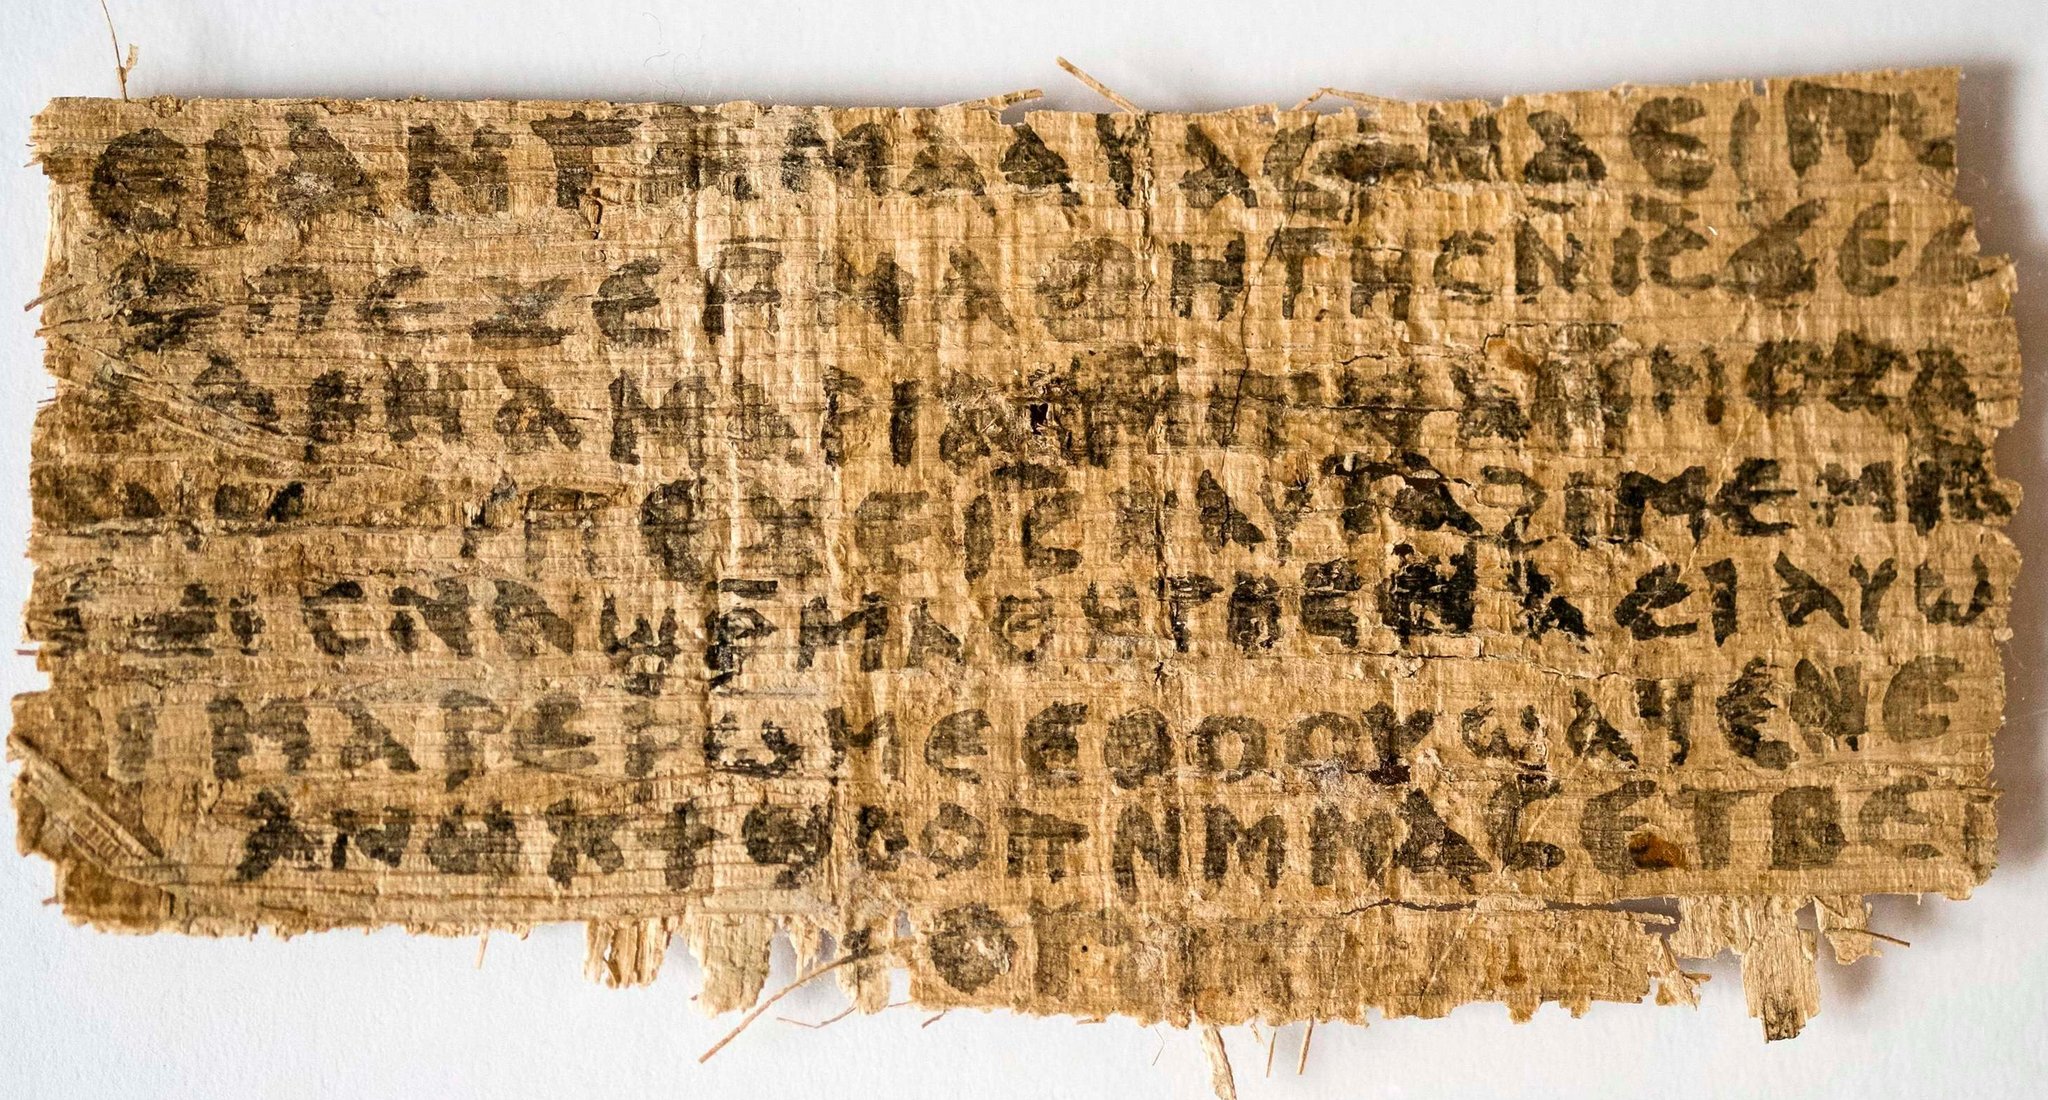 ⲉⲓ ⲁⲛ ⲧⲁⲙⲁⲁⲩ ⲁⲥϯ ⲛⲁⲉⲓ ⲡ
ⲥ ⲡⲉϫⲉ ⲙⲙⲁⲑⲏⲧⲏⲥ ⲛⲓ̅ⲥ̅ ϫⲉ ⲥ
ⲁⲣⲛⲁ ⲙⲁⲣⲓⲁⲙ
ⲡⲉϫⲉ ⲓ̅ⲥ̅ ⲛⲁⲩ ⲧⲁϩⲓⲙⲉ ⲙⲛ
ⲥⲛⲁϣⲣ̅ⲙⲁⲑⲏⲧⲏⲥ ⲛⲁⲉⲓ ⲁⲩⲱ
ⲓ ⲙⲁⲣⲉⲣⲱⲙⲉ ⲉⲑⲟⲟⲩ ϣⲁϥⲉ ⲛⲉ
ⲁⲛⲟⲕ ϯϣⲟⲟⲡ ⲛⲙⲙⲁⲥ ⲉⲧⲃⲉ ⲡ